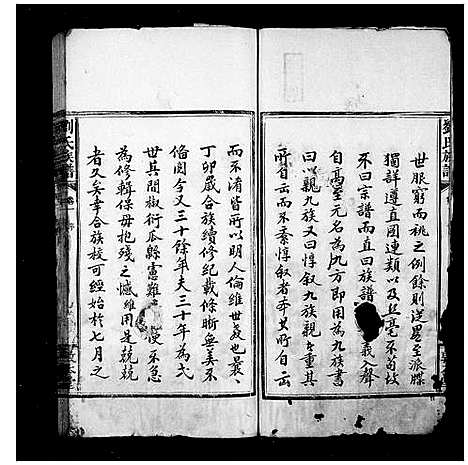 劉氏族譜
世服窮而祧之例餘則逆畧至派牒
獨詳遵直圖連類以及且毫不苟故
不曰宗譜而直曰族譜義入聲
自高至元名為九方即用為九族書
曰以親九族又曰惇叙九族親重其
所自云而不紊惇叙者奔其所自云
而不淆皆所以明人倫維世敎也曩
丁卯歲合族續修紀載條晰無美不
備閱今又三十餘年夫三十年為弌
世其間椒衍瓜綿憲難使不急
為修輯保毋抱殘之憾維用是兢兢
者久矣幸合族梭可經始於七月之
劉氏族譜